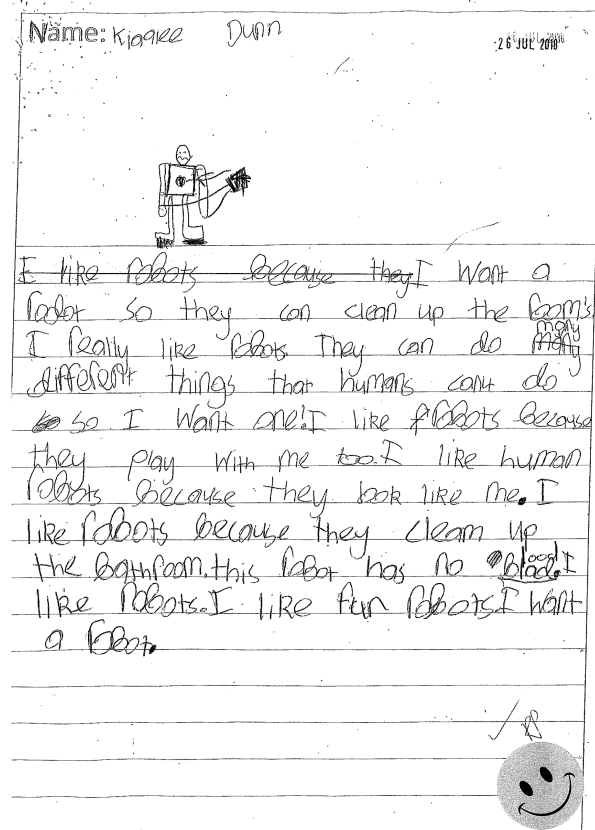 Name: Kiaglee Dunn
26 JUL 2018
I like robots because they I want a
rodot so they can clean up the room's
many
I really like robots They can do many
different things that humans cant do
so so I want one! I like robots because
they play with me too. I like human
robots because they look like me. I
like robots because they clean up
blood
the bathroom. this robot has no blad. I
like robots. I like fun robots I want
a robot.